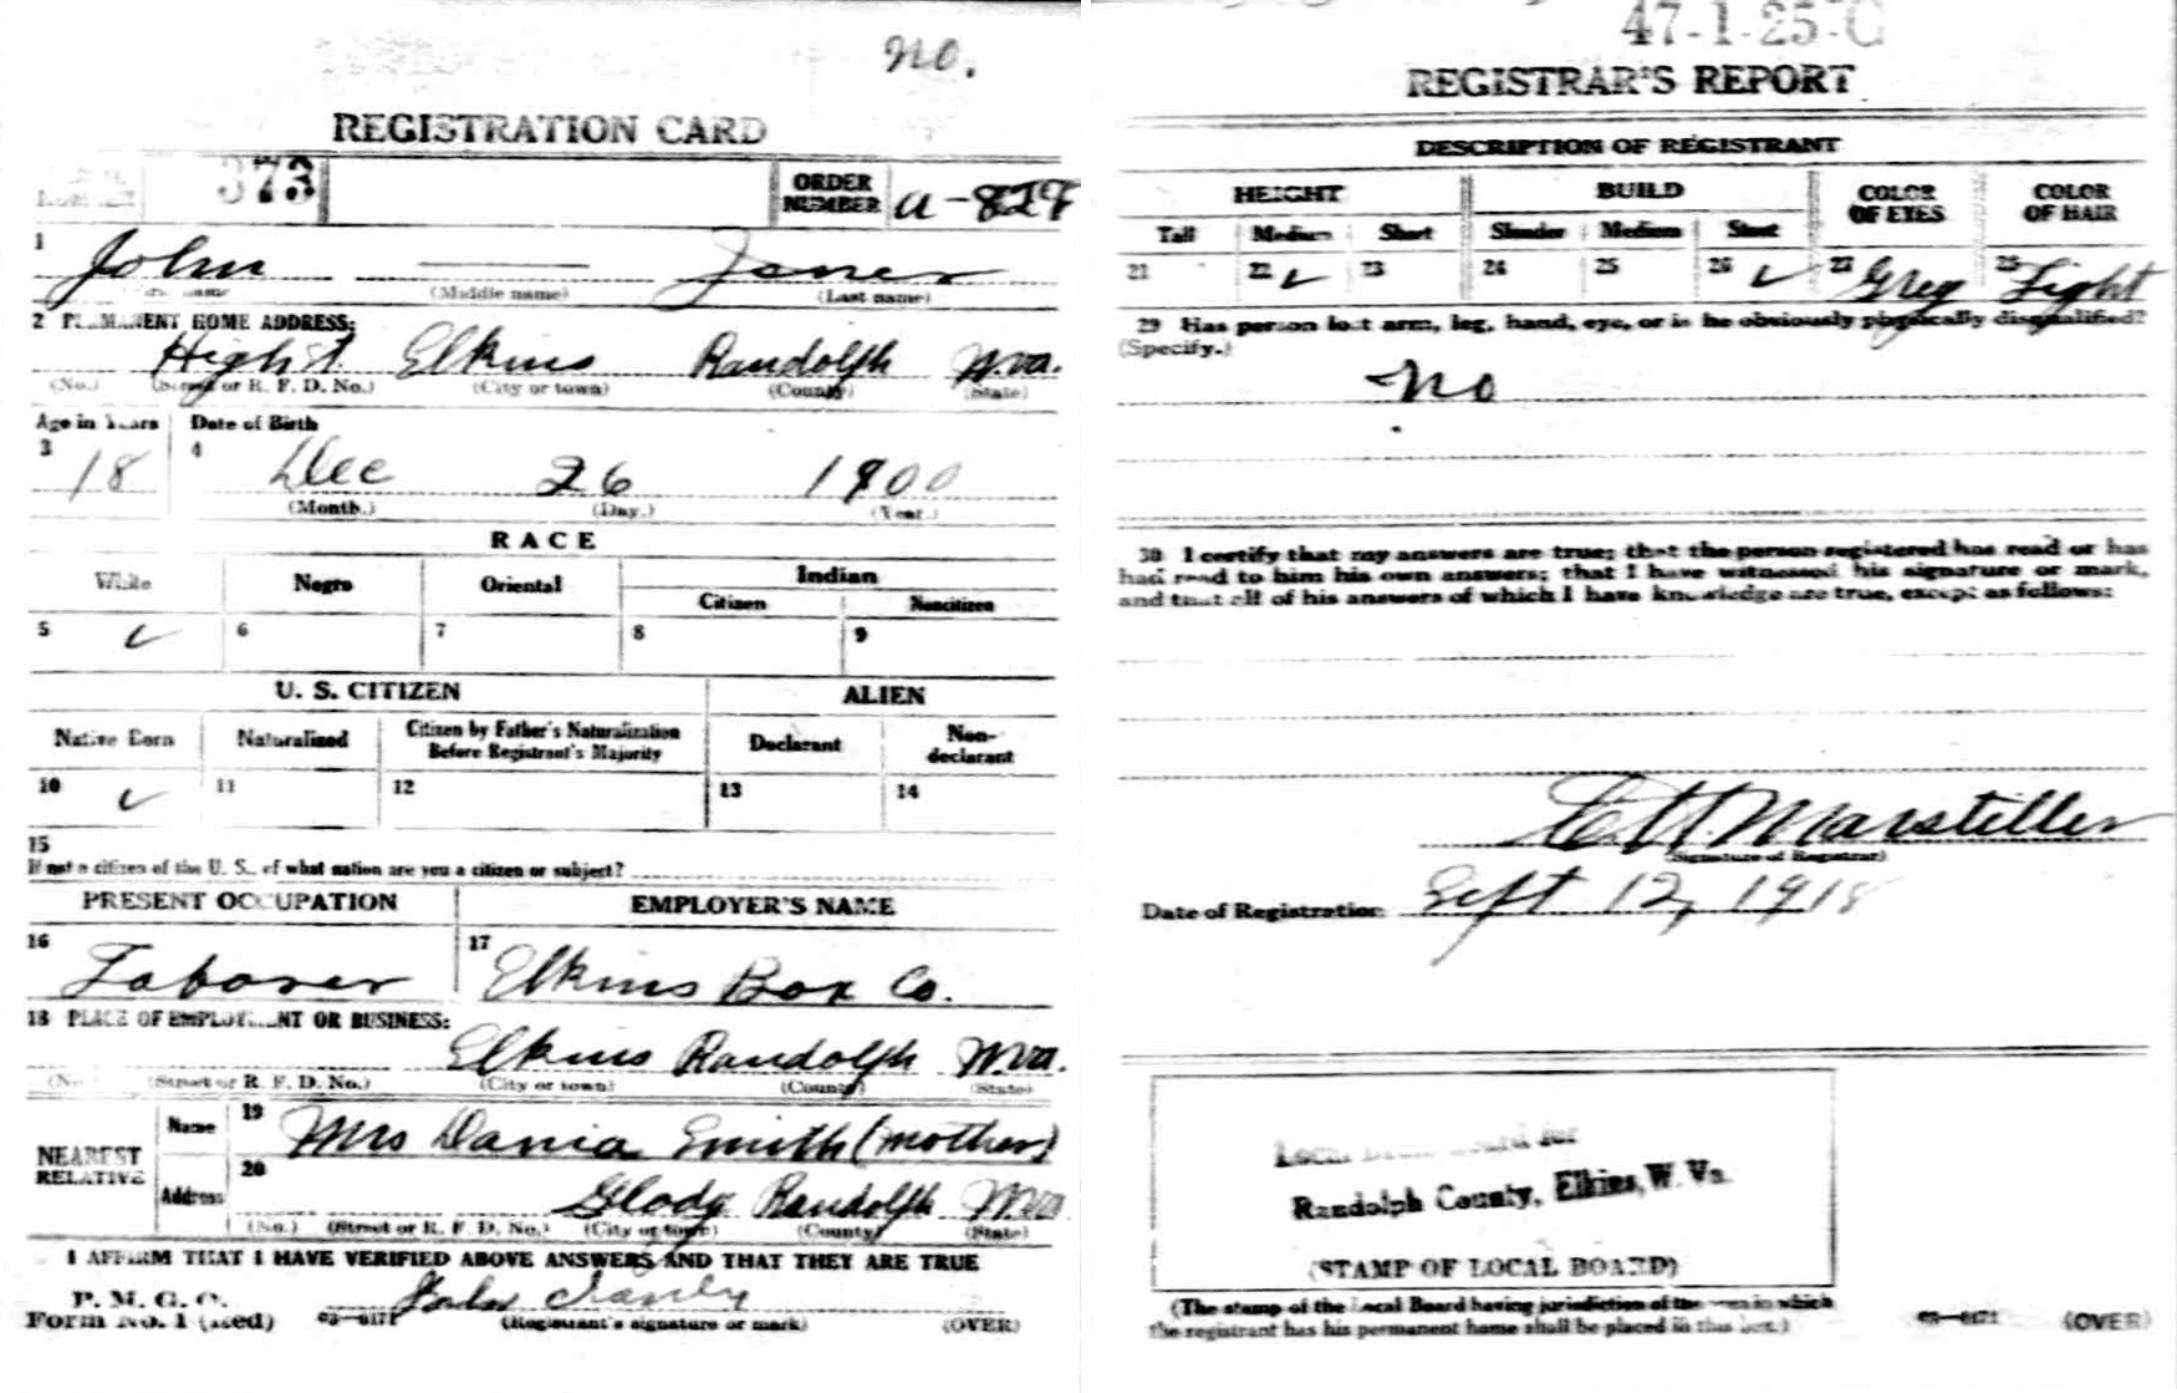 no.
REGISTRATION CARD
373 ORDER NUMBER a-827
1 John Jones
(Middle name) (Last name)
2 PERMANENT HOME ADDRESS:
High st. Elkins Randolph W.va.
(No.) (Street or R. F. D. No.) (City or town) (County) (State)
Age in Years Date of Birth
3 18 4 Dec 26 1900
(Month.) (Day.) (Year.)
RACE
White Negro Oriental Indian
Citizen Noncitizen
5 ✓ 6 7 8 9
U. S. CITIZEN ALIEN
Native Born Naturalized Citizen by Father's Naturalization Before Registrant's Majority Declarant Non-declarant
10 ✓ 11 12 13 14
15
If not a citizen of the U. S., of what nation are you a citizen or subject?
PRESENT OCCUPATION EMPLOYER'S NAME
16 Laborer 17 Elkins Box Co.
18 PLACE OF EMPLOYMENT OR BUSINESS:
Elkins Randolph W.va.
(No.) (Street or R. F. D. No.) (City or town) (County) (State)
NEAREST RELATIVE
Name 19 Mrs Dania Smith (mother)
Address 20 Glady Randolph W.va
(No.) (Street or R. F. D. No.) (City or town) (County) (State)
I AFFIRM THAT I HAVE VERIFIED ABOVE ANSWERS AND THAT THEY ARE TRUE
P. M. G. O.
Form No. 1 (Red) 03—6171 John
(Registrant's signature or mark) (OVER)
47-1-25-C
REGISTRAR'S REPORT
DESCRIPTION OF REGISTRANT
HEIGHT BUILD COLOR OF EYES COLOR OF HAIR
Tall Medium Short Slender Medium Stout
21 22 ✓ 23 24 25 26 ✓ 27 Grey 28 Light
29 Has person lost arm, leg, hand, eye, or is he obviously physically disqualified?
(Specify.)
no
30 I certify that my answers are true; that the person registered has read or has
had read to him his own answers; that I have witnessed his signature or mark,
and that all of his answers of which I have knowledge are true, except as follows:
Marstiller
(Signature of Registrar)
Date of Registration Sept 12, 1918
Local Board for
Randolph County, Elkins, W. Va.
(STAMP OF LOCAL BOARD)
(The stamp of the Local Board having jurisdiction of the area in which
the registrant has his permanent home shall be placed in this box.)
03—6171 (OVER)